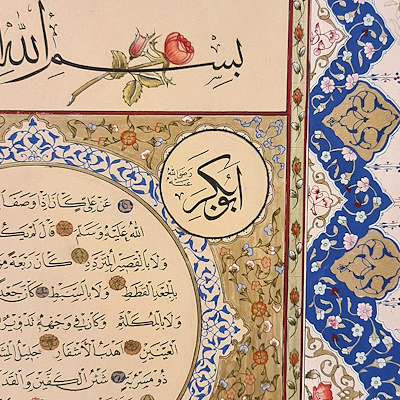 بسم الله
ابو بكر
رضي الله عنه
عن علي كان اذا وصف ا
الله عليه وسلم قال لم يك
ولا بالقصير المتردد كان ربعة م
بالجعد القطط ولا بالسبط كان جعد
ولا بالمكلثم وكان في وجهه تدوير
العينين اهدب الاشفار جليل المش
ذو مسربة شثن الكفين والقد